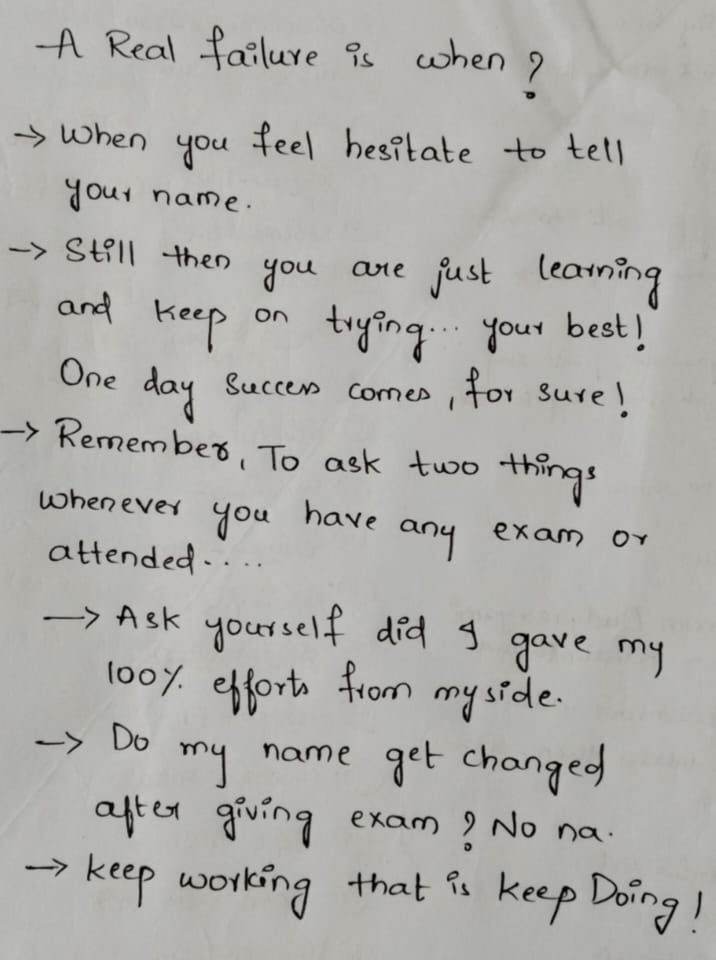 A Real failure is when?
→ When you feel hesitate to tell
your name.
→ Still then you are just learning
and keep on trying... your best!
One day success comes, for sure!
→ Remember, To ask two things
whenever you have any exam or
attended....
→ Ask yourself did I gave my
100% efforts from my side.
→ Do my name get changed
after giving exam? No na.
→ keep working that is keep Doing!